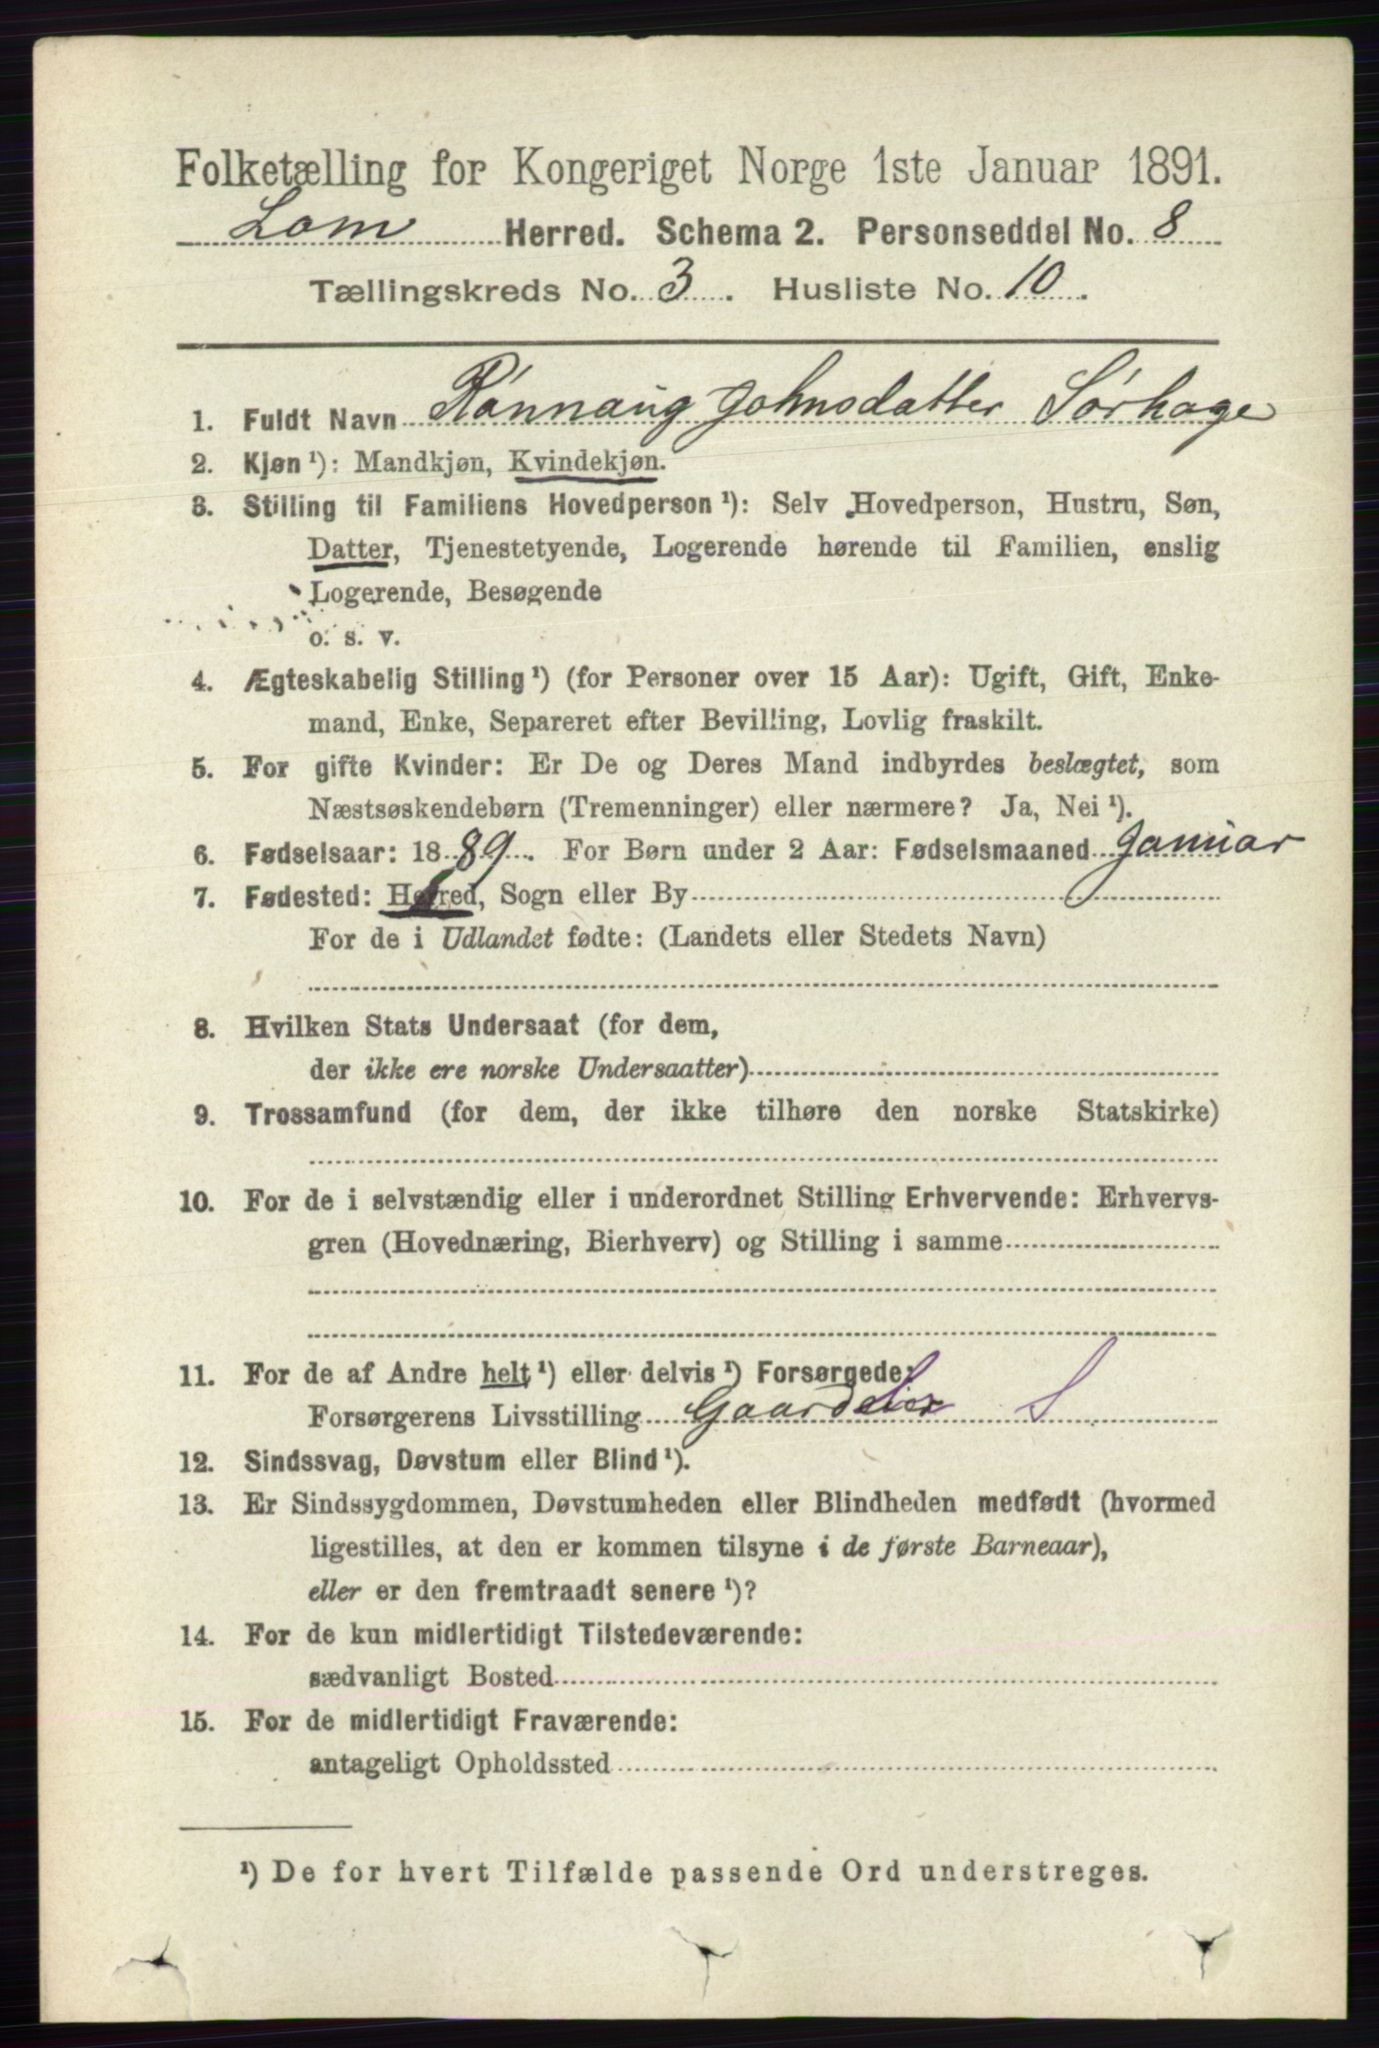 Folketælling for Kongeriget Norge 1ste Januar 1891.
Lom Herred. Schema 2. Personseddel No. 8
Tællingskreds No. 3. Husliste No. 10.
1. Fuldt Navn Rónnaug Johnsdatter Sørhage
2. Kjøn¹): Mandkjøn, Kvindekjøn.
3. Stilling til Familiens Hovedperson¹): Selv Hovedperson, Hustru, Søn,
Datter, Tjenestetyende, Logerende hørende til Familien, enslig
Logerende, Besøgende
o. s. v.
4. Ægteskabelig Stilling¹) (for Personer over 15 Aar): Ugift, Gift, Enke-
mand, Enke, Separeret efter Bevilling, Lovlig fraskilt.
5. For gifte Kvinder: Er De og Deres Mand indbyrdes beslægtet, som
Næstsøskendebørn (Tremenninger) eller nærmere? Ja, Nei¹).
6. Fødselsaar: 1889. For Børn under 2 Aar: Fødselsmaaned Januar
7. Fødested: Herred, Sogn eller By
For de i Udlandet fødte: (Landets eller Stedets Navn)
8. Hvilken Stats Undersaat (for dem,
der ikke ere norske Undersaatter)
9. Trossamfund (for dem, der ikke tilhøre den norske Statskirke)
10. For de i selvstændig eller i underordnet Stilling Erhvervende: Erhvervs-
gren (Hovednæring, Bierhverv) og Stilling i samme
11. For de af Andre helt¹) eller delvis¹) Forsørgede:
Forsørgerens Livsstilling S
12. Sindssvag, Døvstum eller Blind¹).
13. Er Sindssygdommen, Døvstumheden eller Blindheden medfødt (hvormed
ligestilles, at den er kommen tilsyne i de første Barneaar),
eller er den fremtraadt senere¹)?
14. For de kun midlertidigt Tilstedeværende:
sædvanligt Bosted
15. For de midlertidigt Fraværende:
antageligt Opholdssted
¹) De for hvert Tilfælde passende Ord understreges.